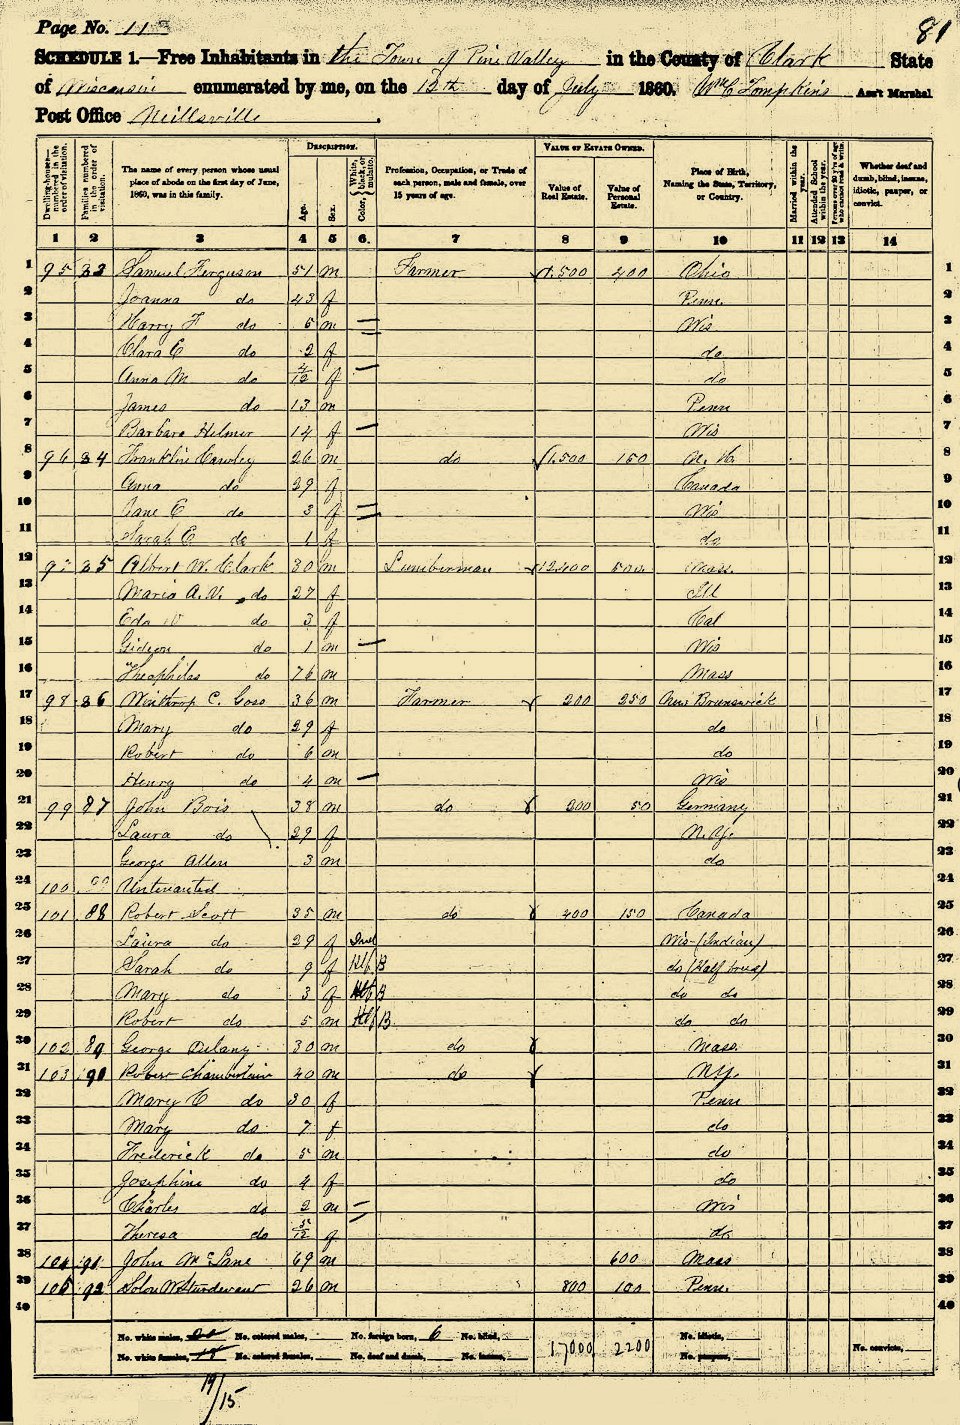 Page No. 113
81
SCHEDULE 1.—Free Inhabitants in the Town of Pine Valley in the County of Clark State
of Wisconsin enumerated by me, on the 12th day of July 1860. Wm C Tompkins Ass't Marshal
Post Office Neillsville.
Dwelling-houses—numbered in the order of visitation.
Families numbered in the order of visitation.
The name of every person whose usual place of abode on the first day of June, 1860, was in this family.
DESCRIPTION.
Age.
Sex.
Color, White, black, or mulatto.
Profession, Occupation, or Trade of each person, male and female, over 15 years of age.
VALUE OF ESTATE OWNED.
Value of Real Estate.
Value of Personal Estate.
Place of Birth, Naming the State, Territory, or Country.
Married within the year.
Attended School within the year.
Persons over 20 y'rs of age who cannot read & write.
Whether deaf and dumb, blind, insane, idiotic, pauper, or convict.
1 2 3 4 5 6. 7 8 9 10 11 12 13 14
1 95 83 Samuel Ferguson 51 m Farmer 1.500 400 Ohio 1
2 Joanna do 43 f Penn. 2
3 Harry F do 5 m Wis 3
4 Clara E do 2 f do 4
5 Anna M do 4/12 f do 5
6 James do 13 m Penn 6
7 Barbara Helmer 14 f Wis 7
8 96 84 Franklin Cawley 26 m do 1.500 150 N. H. 8
9 Anna do 29 f Canada 9
10 Jane E do 3 f Wis 10
11 Sarah E do 1 f do 11
12 97 85 Albert W. Clark 30 m Lumberman 12400 500. Mass. 12
13 Maria A. V. do 27 f Ill 13
14 Eda do 3 f Cal 14
15 Gideon do 1 m Wis 15
16 Theophilas do 76 m Mass 16
17 98 86 Winthrop C. Goss 36 m Farmer 200 250 New Brunswick 17
18 Mary do 29 f do 18
19 Robert do 6 m do 19
20 Henry do 4 m Wis 20
21 99 87 John Bois 38 m do 200 50 Germany 21
22 Laura do 29 f N.Y. 22
23 George Allen 3 m do 23
24 100 Untenanted 24
25 101 88 Robert Scott 35 m do 400 150 Canada 25
26 Laura do 29 f Ind Wis-(Indian) 26
27 Sarah do 9 f Hlf B do (Half breed) 27
28 Mary do 3 f Hlf B do do 28
29 Robert do 5 m Hlf B. do do 29
30 102 89 George Delany 30 m do Mass. 30
31 103 90 Robert Chamberlain 40 m do N.Y. 31
32 Mary C do 30 f Penn 32
33 Mary do 7 f do 33
34 Frederick do 5 m do 34
35 Josephine do 4 f do 35
36 Charles do 2 m Wis 36
37 Theresa do 5/12 f do 37
38 104 91 John McLane 69 m 600 Mass 38
39 105 92 Solon W Sturdevant 26 m 800 100 Penn. 39
40 40
No. white males, No. colored males, No. foreign born, 6 No. blind, 17000 2200 No. idiotic,
No. white females, 18 No. colored females, No. deaf and dumb, No. insane, No. paupers, No. convicts,
19/15